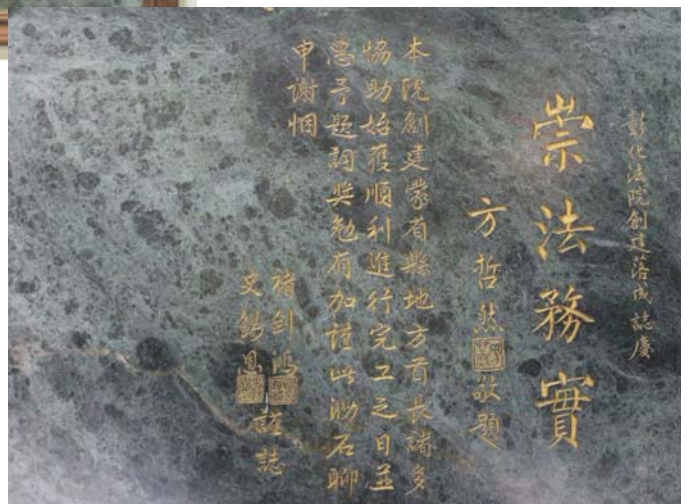 彰化法院創建落成誌慶
崇法務實
方哲然敬題
本院創建蒙省縣地方首長諸多
協助始獲順利進行完工之日並
惠予題詞獎勉有加謹此泐石聊
申謝悃
褚劍鴻
史錫恩謹誌